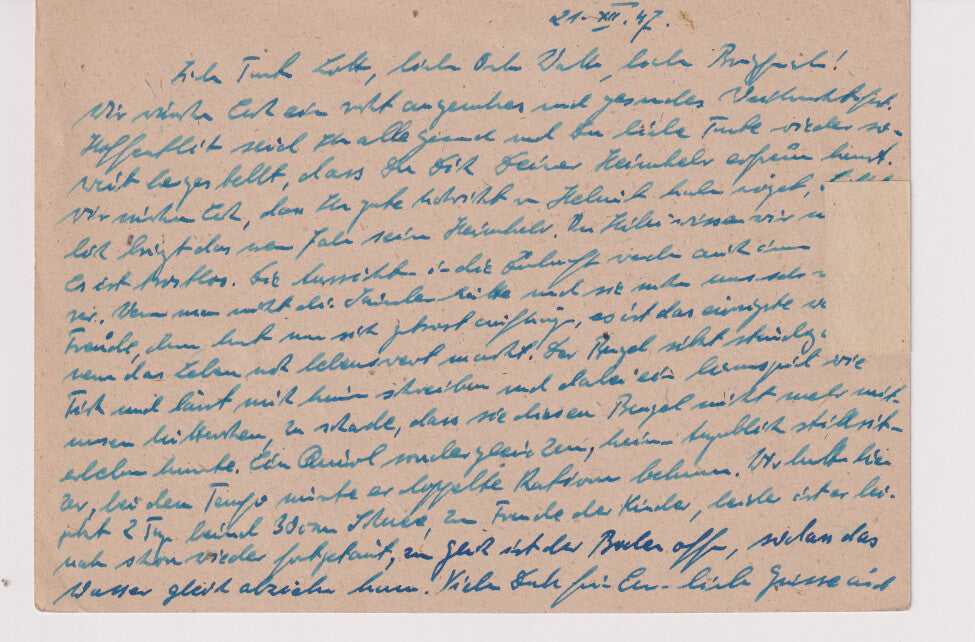 21. XII. 47.
Liebe Tante Lotte, lieber Onkel Walter, liebe
Wir wünschen Euch ein recht angenehmes und gesundes Weihnachtsfest.
Hoffentlich seid Ihr alle gesund und Du liebe Tante wieder so-
weit hergestellt, dass Du Dich Deiner Heimkehr erfreuen kannst.
Wir wünschen Euch, dass Ihr gute Nachricht von Helmut haben möget,
bringt das neue Jahr seine Heimkehr. wissen wir
Es ist trostlos. Die Aussichten in die Zukunft werden auch immer
Wenn man nicht die Kinder hätte und sie machen uns sehr
Freude, dann könnte man sich getrost aufhängen, es ist das einzigste
das Leben noch lebenswert macht. Der Bengel sitzt ständig
Tisch und lässt mich kein schreiben und dabei ein wie
unsere zu schade, dass sie diesen Bengel nicht mehr mit-
erleben konnte. Ein sondergleichen, keinen Augenblick stillsit-
zen, bei dem Tempo müsste er doppelte Rationen bekommen. Wir hatten hier
jetzt 2 Tage 30 cm Schnee, zur Freude der Kinder, leider ist er bei-
nah schon wieder fortgetaut, zum Glück ist der Boden offen, sodass das
Wasser gleich abziehen kann. Vielen Dank für liebe Grüsse und